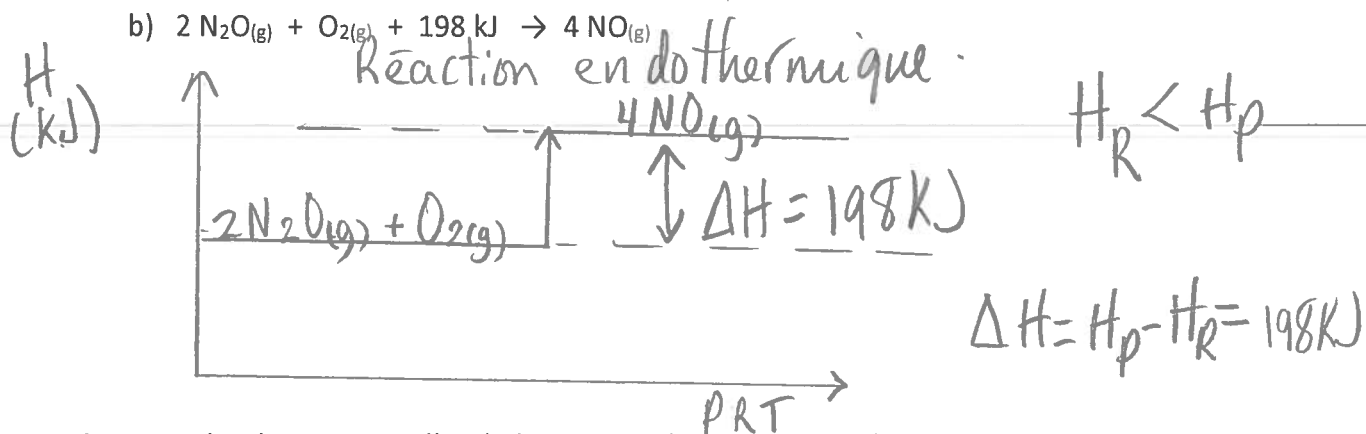 b) 2 N2O(g) + O2(g) + 198 kJ → 4 NO(g)
Réaction endothermique.
H
(kJ)
4NO(g)
HR < Hp
2N2O(g) + O2(g)
ΔH = 198KJ
ΔH = Hp - HR = 198KJ
PRT